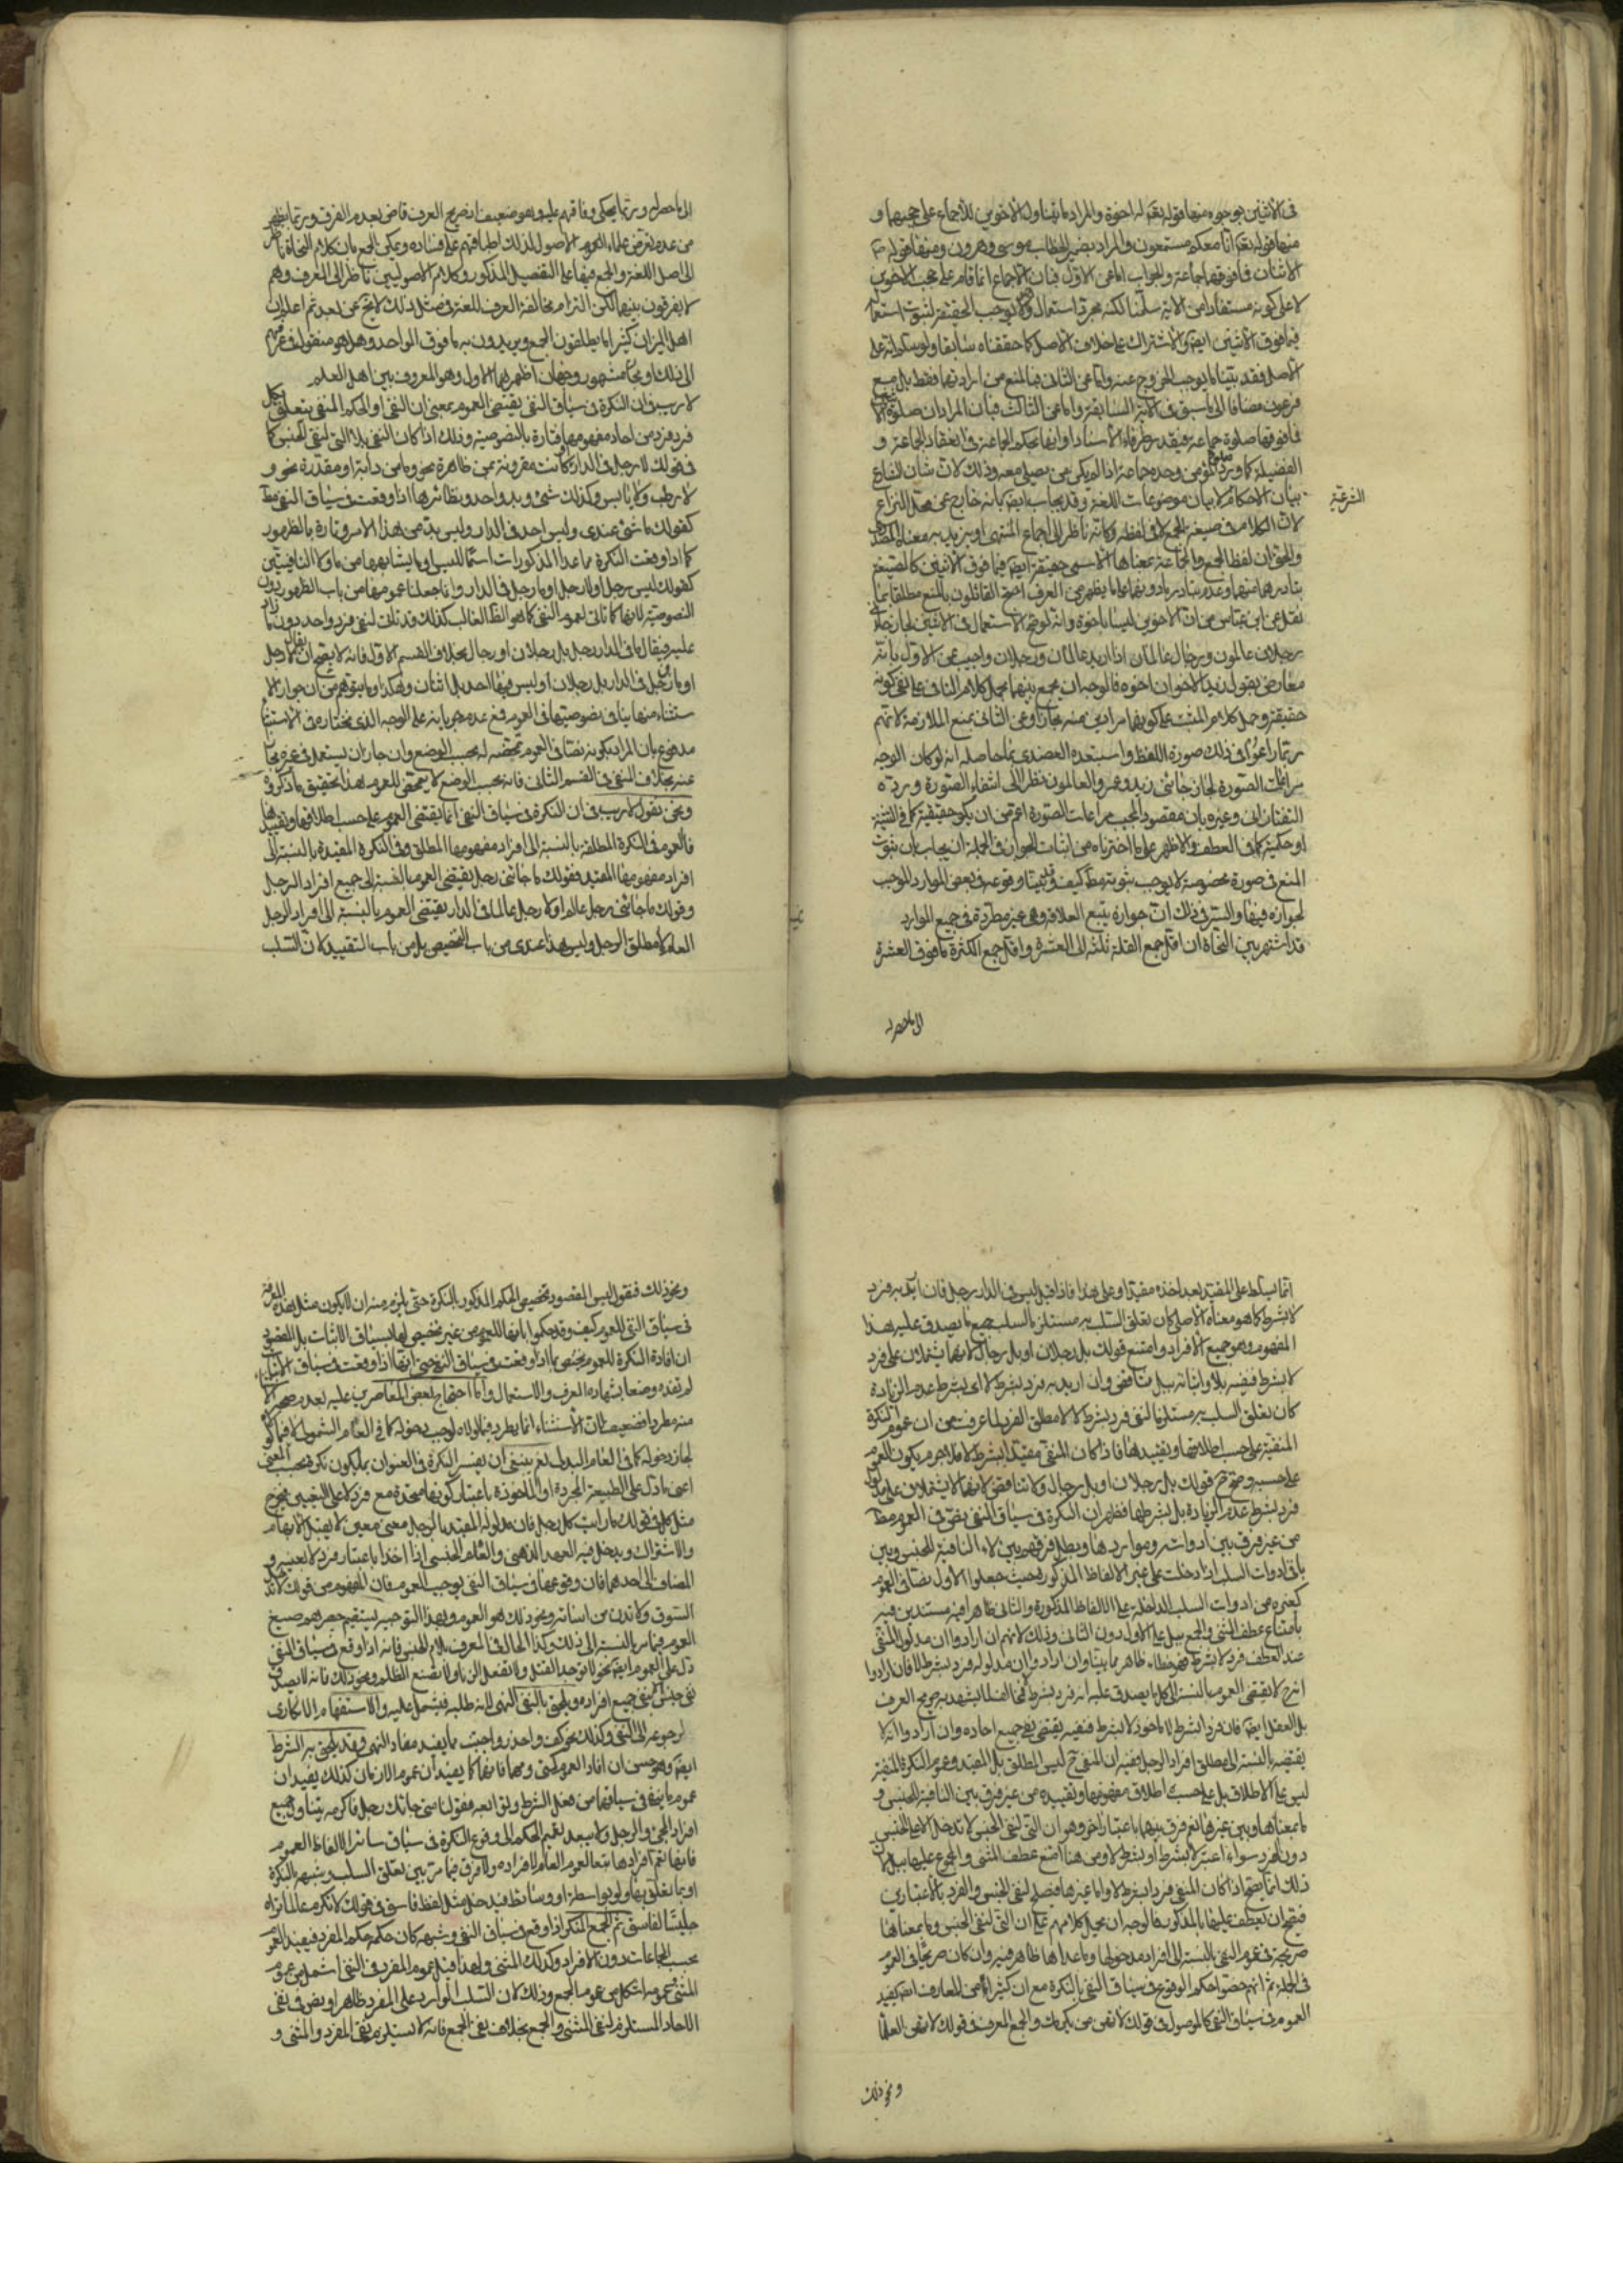 في الاثنين بوجوه منها قوله تعالى له اخوة والمراد ما يتناول الاخوين للاجماع على حجبهما و
منها قوله تعالى انا معكم مستمعون والمراد بضمير الخطاب موسى وهرون ومنها قوله
الاثنان فما فوقهما جماعة والجواب اما عن الاول فبان الاجماع انما قام على حجب الاخوين
لا على كونه مستفادا من الاية سلمنا لكنه مجرد استعمال وهو لا يوجب الحقيقة لثبوت استعماله
فيما فوق الاثنين ايضا والاشتراك على خلاف الاصل كما حققناه سابقا ولو سلم دلالته على
الاصل فقد بينا ما يوجب الخروج عنه واما عن الثاني فبالمنع من ارادتهما فقط بل مع
فرعون مضافا الى ما سبق في الاية السابقة واما عن الثالث فبان المراد ان صلوة الاثنين
فما فوقها صلوة جماعة
الفضيلة كما ورد المؤمن وحده جماعة اذا لم يكن من يصلي معه وذلك لان شان الشارع
بيان الاحكام لا بيان موضوعات اللغة وقد يجاب ايضا بانه خارج عن محل النزاع
الشرعية
لان الكلام في صيغة الجمع لا في لفظه وكانه ناظر الى اجماع المنتهى او يريد به معناه المصدري
والحق ان لفظ الجمع والجماعة بمعناها الاسمي حقيقة ايضا فيما فوق الاثنين كالصيغة
بتبادرهما منهما وعدم تبادر ما دونهما على ما يظهر من العرف احتج القائلون بالمنع مطلقا بما
نقل عن ابن عباس من ان الاخوين ليسا باخوة وانه لو صح الاستعمال في الاثنين لجاز جاءني
رجلان عالمون ورجال عالمان اذا اريد عالمان ورجلان واجيب عن الاول بانه
معارض بقول زيد الاخوان اخوة فالوجه ان يجمع بينهما بحمل كلام النافي على نفي كونه
حقيقة وحمل كلام المثبت على كونهما مرادين منه مجازا وعن الثاني بمنع الملازمة لانهم
ربما راعوا في ذلك صورة اللفظ واستبعده العضدي بما حاصله انه لو كان الوجه
مراعات الصورة لجاز جائني زيد وعمرو العالمون نظرا الى انتفاء الصورة ورده
التفتازاني وغيره بان مقصود المجيب مراعات الصورة اعم من ان يكون حقيقية كما في التثنية
او حكمية كما في العطف والاظهر على ما اخترناه من اثبات الجواز في الجملة ان يجاب بان ثبوت
المنع في صورة مخصوصة لا يوجب ثبوته مطلقا كيف وقد بينا وقوعه في بعض الموارد الموجب
لجوازه فيها والسر في ذلك ان جوازه يتبع العلاقة وهي غير مطردة في جميع الموارد
قد اشتهر بين النحاة ان اقل جمع القلة ثلثة الى العشرة واقل جمع الكثرة ما فوق العشرة
الى ما حصر له
الى ما حصر له وربما يحكى وفاقهم عليه وهو ضعيف اذ صريح العرف قاض بعدم الفرق وربما يظهر
من عدم تعرض علماء الاصول لذلك اطباقهم على فساده ويمكن الجمع بان كلام النحاة ناظر
الى اصل اللغة والجمع فيها على التفصيل المذكور وكلام الاصوليين ناظر الى العرف وهم
لا يفرقون بينهما لكن التزام مخالفة العرف للغة في مثل ذلك لا يخ عن بعد ثم اعلم ان
اهل الميزان كثيرا ما يطلقون الجمع ويريدون به ما فوق الواحد وهل هو منقول في عرفهم
الى ذلك او مجاز مشهور وجهان اظهرهما الاول وهو المعروف بين اهل العلم
لا ريب في ان النكرة في سياق النفي يقتضي العموم بمعنى ان النفي او الحكم المنفي يتعلق بكل
فرد فرد من احاد مفهومها فتارة بالنصوصية وذلك اذا كان النفي بلا التي لنفي الجنس كما
في قولك لا رجل في الدار او كانت مقرونة بمن ظاهرة نحو وما من دابة او مقدرة نحو و
لا رطب ولا يابس وكذلك شيء وبد واحد ونظائرها اذا وقعت في سياق النفي مط
كقولك ما شيء عندي وليس احد في الدار وليس بد عن هذا الامر وتارة بالظهور
كما اذا وقعت النكرة ما عدا المذكورات اسما لليس او ما يشابهها من ما ولا النافيتين
كقولك ليس رجل او لا رجل او ما رجل في الدار وانما جعلنا عمومها من باب الظهور دون
النصوصية لانها كما تاتي لعموم النفي كما هو الظ الغالب كذلك قد تاتي لنفي فرد واحد دون ما زاد
عليه فيقال ما في الدار رجل بل رجلان او رجال بخلاف القسم الاول فانه لا يصح ان يقال لا رجل
او ما من رجل في الدار بل رجلان او ليس فيها احد بل اثنان وهكذا وما يتوهم من ان جواز الا
ستثناء منها ينافي نصوصيتها في العموم مع عدم جريانه على الوجه الذي نختاره في الاستثناء
مدفوع بان المراد بكونه نصا في العموم تمحضه له بحسب الوضع وان جاز ان يستعمل في غيره مجازا
عنه بخلاف النفي في القسم الثاني فانه بحسب الوضع لا يتمحض للعموم هذا تحقيق ما ذكروه
ونحن نقول لا ريب في ان النكرة في سياق النفي انما يقتضي العموم على حسب اطلاقها وتقييدها
فالعموم في النكرة المطلقة بالنسبة الى افراد مفهومها المطلق وفي النكرة المقيدة بالنسبة الى
افراد مفهومها المقيد فقولك ما جائني رجل يقتضي العموم بالنسبة الى جميع افراد الرجل
وقولك ما جائني رجل عالم او لا رجل عالما في الدار يقتضي العموم بالنسبة الى افراد الرجل
العالم لا مطلق الرجل وليس هذا عندي من باب التخصيص بل من باب التقييد لان السلب
انما يسلط على المقيد بعد اخذه مقيدا وعلى هذا فاذا قيل ليس في الدار رجل فان اريد به فرد
لا بشرط كما هو معناه الاصلي كان تعلق السلب به مستلزما لسلب جميع ما يصدق عليه هذا
المفهوم وهو جميع الافراد وامتنع قولك بل رجلان او بل رجال لانهما يشتملان على فرد
لا بشرط فنفيه بلا واثباته ببل تناقض وان اريد به فرد بشرط لا اي بشرط عدم الزيادة
كان تعلق السلب به مستلزما لنفي فرد بشرط لا لا مطلق الفرد لما عرفت من ان عموم النكرة
المنفية على حسب اطلاقها وتقييدها فاذا كان المنفي مقيدا بشرط لا فلا جرم يكون العموم
على حسبه وصح ح قولك بل رجلان او بل رجال ولا تناقض لانهما لا يشتملان على مدلول
فرد بشرط عدم الزيادة بل بشرطها فظهر ان النكرة في سياق النفي نص في العموم مط
من غير فرق بين ادواته ومواردها وبطل فرقهم بين لاء النافية للجنس وبين
باقي ادوات السلب اذا دخلت على غير الالفاظ المذكورة بحيث جعلوا الاول نصا في العموم
كغيره من ادوات السلب الداخلة على الالفاظ المذكورة والثاني ظاهرا فيه مستندين فيه
بامتناع عطف المثنى والجمع ببل على الاول دون الثاني وذلك لانهم ان ارادوا ان مدلول المنفي
عند العطف فرد لا بشرط فهو خطاء ظاهر لما بينا وان ارادوا ان مدلوله فرد بشرط لا فان ارادوا
انه ح لا يقتضي العموم بالنسبة الى كل ما يصدق عليه انه فرد بشرط لا ففي الفساد يشهد به صريح العرف
بل العقل ايضا فان فردا بشرط لا ماخوذ لا بشرط فنفيه يقتضي نفي جميع احاده وان ارادوا انه لا
يقتضيه بالنسبة الى مطلق افراد الرجل ففيه ان المنفي ح ليس المطلق بل المقيد وعموم النكرة المنفية
ليس على الاطلاق بل على حسب اطلاق مفهومها وتقييده من غير فرق بين النافية للجنس و
ما بمعناها وبين غيرها نعم فرق بينهما باعتبار اخر وهو ان التي لنفي الجنس لا تدخل الا على الجنس
دون الفرد سواء اعتبر لا بشرط او بشرط لا ومن هنا امتنع عطف المثنى والمجموع عليها ببل لان
ذلك انما يصح اذا كان المنفي فردا بشرط لا واما غيرها فيصلح لنفي الجنس والفرد بالاعتبارين
فيصح ان يعطف عليها بالمذكور فالوجه ان يحمل كلامهم على ان التي لنفي الجنس وما بمعناها
صريحة في عموم النفي بالنسبة الى افراد مدخولها وما عداها ظاهر فيه وان كان صريحا في العموم
في الجملة ثم انهم خصوا حكم الوقوع في سياق النفي بالنكرة مع ان كثيرا من المعارف ايضا يفيد
العموم في سياق النفي كالموصول في قولك لا تهن من يكرمك والجمع المعرف في قولك لا تهن العلماء
ونحو ذلك
ونحو ذلك فنقول ليس المقصود تخصيص الحكم المذكور بالنكرة حتى يلزم منه ان لا يكون مثل هذه المعرفة
في سياق النفي للعموم كيف وقد حكموا بانها للعموم من غير تخصيص لها بسياق الاثبات بل المقصود
ان افادة النكرة للعموم يختص بما اذا وقعت في سياق النفي حتى انها اذا وقعت في سياق الاثبات
لم تفده وضعا بشهادة العرف والاستعمال واما احتجاج بعض المعاصرين عليه بعدم صحة الا
منه مطردا فضعيف لان الاستثناء انما يطرد فيما لولاه لوجب دخوله كما في العام الشمولي لا فيما لو
لجاز دخوله كما في العام البدلي نعم ينبغي ان يفسر النكرة في العنوان بما يكون نكرة بحسب المعنى
اعني ما دل على الطبيعة المجردة او الماخوذة باعتبار كونها متحدة مع فرد لا على التعيين فيخرج
مثل كل في قولك ما رايت كل رجل فان مدلوله المقيد بالرجل معنى معين لا يقبل الابهام
والاشتراك ويدخل فيه العهد الذهني والعام الجنسي اذا اخذا باعتبار فرد لا بعينه و
المضاف الى احدهما فان وقوعها في سياق النفي يوجب العموم فان المفهوم من قولك لا تدخل
السوق ولا تدن من اسانه ونحو ذلك هو العموم وبهذا التوجيه يستقيم حصرهم صيغ
العموم فيما مر بالنسبة الى ذلك وكذا الحال في المعرف بلام الجنس فانه اذا وقع في سياق النفي
دل على العموم ايضا نحو لا توجد القتل ولا تفعل الزنا ولا تصنع الظلم ونحو ذلك فانه لا يصدق
نفي جنس الا بنفي جميع افراده ويلحق بالنفي النهي لانه طلبه فيشتمل عليه والاستفهام الانكاري
لرجوعه الى النفي وكذلك نحو كف واحذر واجتنب مما يفيد مفاد النهي وقد يلحق به الشرط
ايضا وهو حسن ان افاد العموم كمتى ومهما فانها كما يفيدان عموم الازمان كذلك يفيدان
عموم ما يقع في سياقهما من فعل الشرط وتوابعه فقولنا متى جائك رجل فاكرمه يتناول جميع
افراد المجيء والرجل ولا يبعد تعميم الحكم الى وقوع النكرة في سياق سائر الفاظ العموم
فانها تعم افرادها تبعا لعموم العام لافراده ولا فرق فيما مر بين تعلق السلب وشبهه بالنكرة
او بما يتعلق بها ولو بواسطة او وسائط فيدخل مثل لفظ فاسق في قولك لا تكرم عالما تراه
جليسا لفاسق ثم الجمع المنكر اذا وقع في سياق النفي وشبهه كان حكمه حكم المفرد فيفيد العموم
بحسب الجماعات دون الافراد وكذلك المثنى ولهذا قيل عموم المفرد في النفي اشمل من عموم
المثنى عمومه اشمل من عموم الجمع وذلك لان السلب الوارد على المفرد ظاهر او نص في نفي
الاحاد المستلزم لنفي المثنى والجمع بخلاف نفي الجمع فانه لا يستلزم نفي المفرد والمثنى و